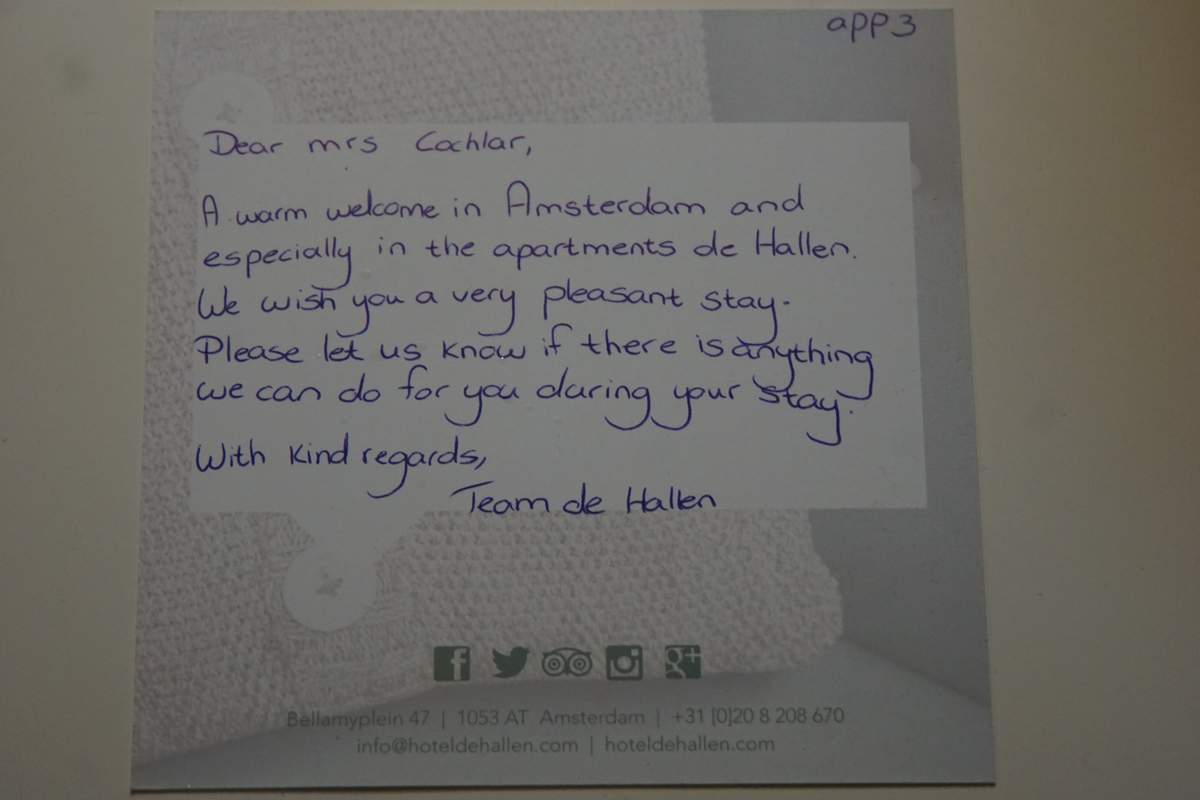 app3
Dear mrs Cochlar,
A warm welcome in Amsterdam and
especially in the apartments de Hallen.
We wish you a very pleasant stay.
Please let us know if there is anything
we can do for you during your stay.
With kind regards,
Team de Hallen
Bellamyplein 47 | 1053 AT Amsterdam | +31 [0]20 8 208 670
info@hoteldehallen.com | hoteldehallen.com